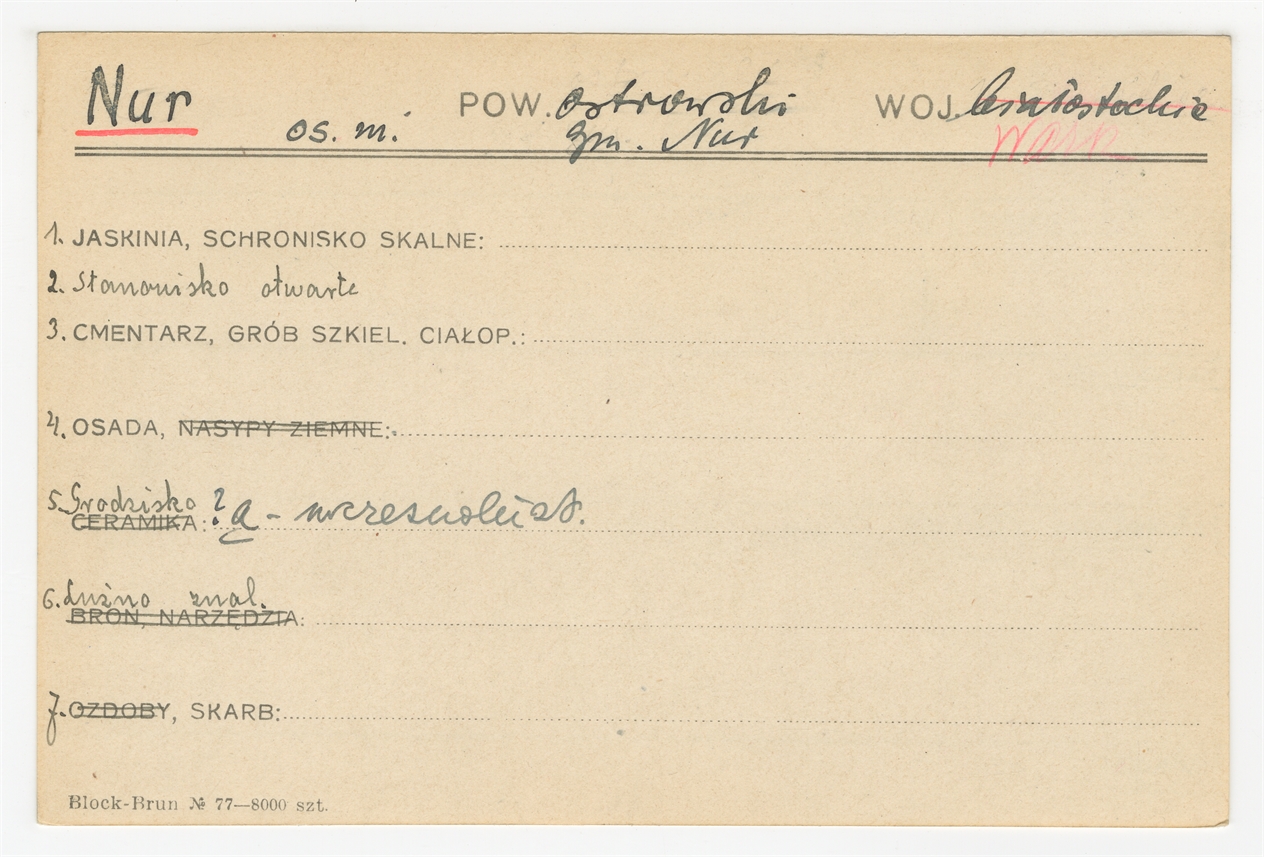 Nur POW. ostrowski WOJ. białostockie
os. m. gm. Nur Warsz
1. JASKINIA, SCHRONISKO SKALNE:
2. Stanowisko otwarte
3. CMENTARZ, GRÓB SZKIEL. CIAŁOP.:
4. OSADA, NASYPY ZIEMNE:
5. Grodzisko ? a - wczesnohist.
CERAMIKA:
6. Luźno znal.
BROŃ, NARZĘDZIA:
7. OZDOBY, SKARB:
Block-Brun № 77—8000 szt.